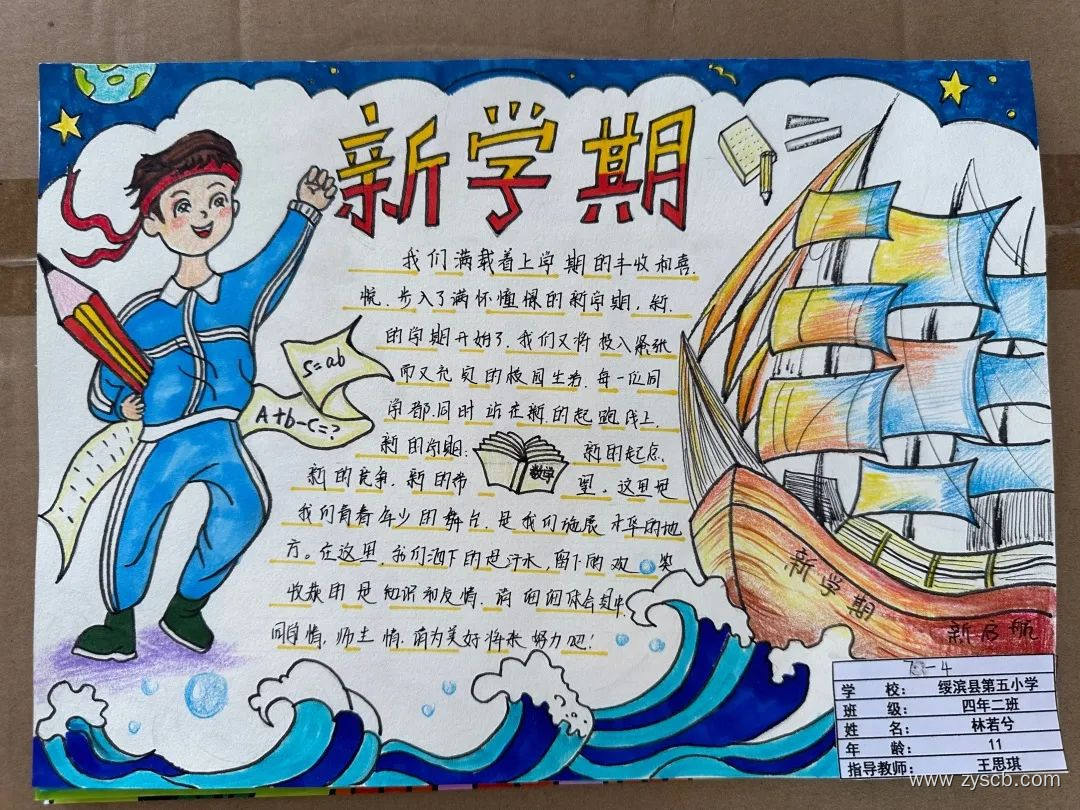 新学期
我们满载着上学期的丰收和喜
悦,步入了满怀憧憬的新学期,新
的学期开始了,我们又将投入紧张
而又充实的校园生活,每一位同
学都同时站在新的起跑线上,
新的学期: 新的起点,
新的竞争,新的希 望。这里是
我们青春年少的舞台,是我们施展才华的地
方。在这里,我们洒下的是汗水,留下的欢笑
收获的是知识和友情,
同学情,师生情,为美好将来努力吧!
S=ab
A+b-C=?
数学
新学期
新启航
学 校: 绥滨县第五小学
班 级: 四年二班
姓 名: 林若兮
年 龄: 11
指导教师: 王思琪
www.zyscb.com